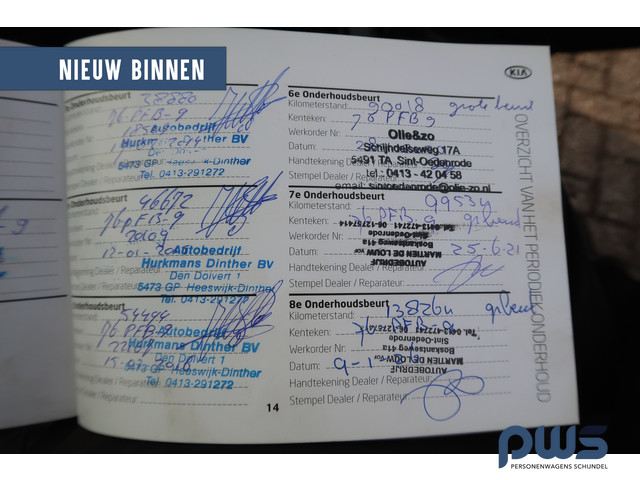 NIEUW BINNEN
KIA
OVERZICHT VAN HET PERIODIEK ONDERHOUD
Onderhoudsbeurt
38880
76-PFB-9
Autobedrijf
Hurkmans Dinther BV
5473 GP Heeswijk-Dinther
Tel. 0413-291272
Onderhoudsbeurt
46672
76-PFB-9
20109
12-01-
Autobedrijf
Hurkmans Dinther BV
Den Dolvert 1
5473 GP Heeswijk-Dinther
Tel. 0413-291272
Handtekening Dealer / Reparateur
Stempel Dealer / Reparateur
Onderhoudsbeurt
54494
76 PFB-9
Autobedrijf
Hurkmans Dinther BV
Den Dolvert 1
5473 GP Heeswijk-Dinther
Tel. 0413-291272
6e Onderhoudsbeurt
Kilometerstand: 90018 grote beurt
Kenteken: 76 PFB 9
Werkorder Nr:
Olie&zo
Schijndelseweg 17A
Datum:
5491 TA Sint-Oedenrode
Handtekening
tel: 0413 - 42 04 58
Stempel Dealer / Reparateur
email: sintoedenrode@olie-zo.nl
7e Onderhoudsbeurt
Kilometerstand: 99534
Kenteken: 76 PFB 9 gr beurt
Tel. 0413-472741 06-12757414
Werkorder Nr:
Sint-Oedenrode
Boskantseweg 41a
Datum: 25-6-21
MARTIEN DE LOUW
AUTOBEDRIJF
Handtekening Dealer / Reparateur
Stempel Dealer / Reparateur:
8e Onderhoudsbeurt
Kilometerstand: gr beurt
Kenteken: 76 PFB-9
Tel. 0413-472741
Sint-Oedenrode
Werkorder Nr:
Boskantseweg 41a
MARTIEN DE LOUW
Datum: 9-1-
AUTOBEDRIJF
Handtekening Dealer / Reparateur:
Stempel Dealer / Reparateur:
14
pws
PERSONENWAGENS SCHIJNDEL